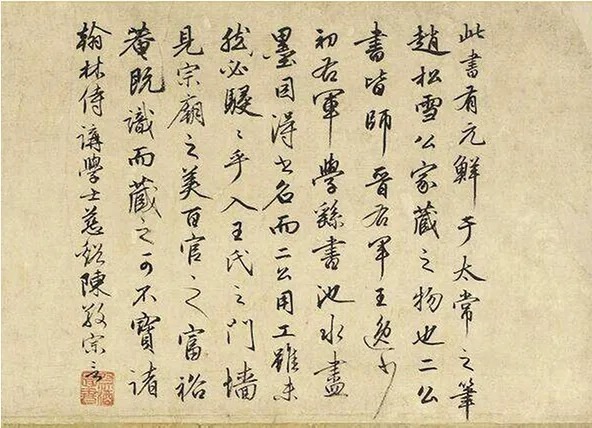 此書有元鮮于太常之筆
趙松雪公家藏之物也二公
書皆師晉右軍王逸少
初右軍學繇書池水盡
墨因得書名而二公用工雖未
然必駸〻乎入王氏之門墻
見宗廟之美百官之富裕
菴既識而藏之可不寶諸
翰林侍講學士慈谿陳敬宗言